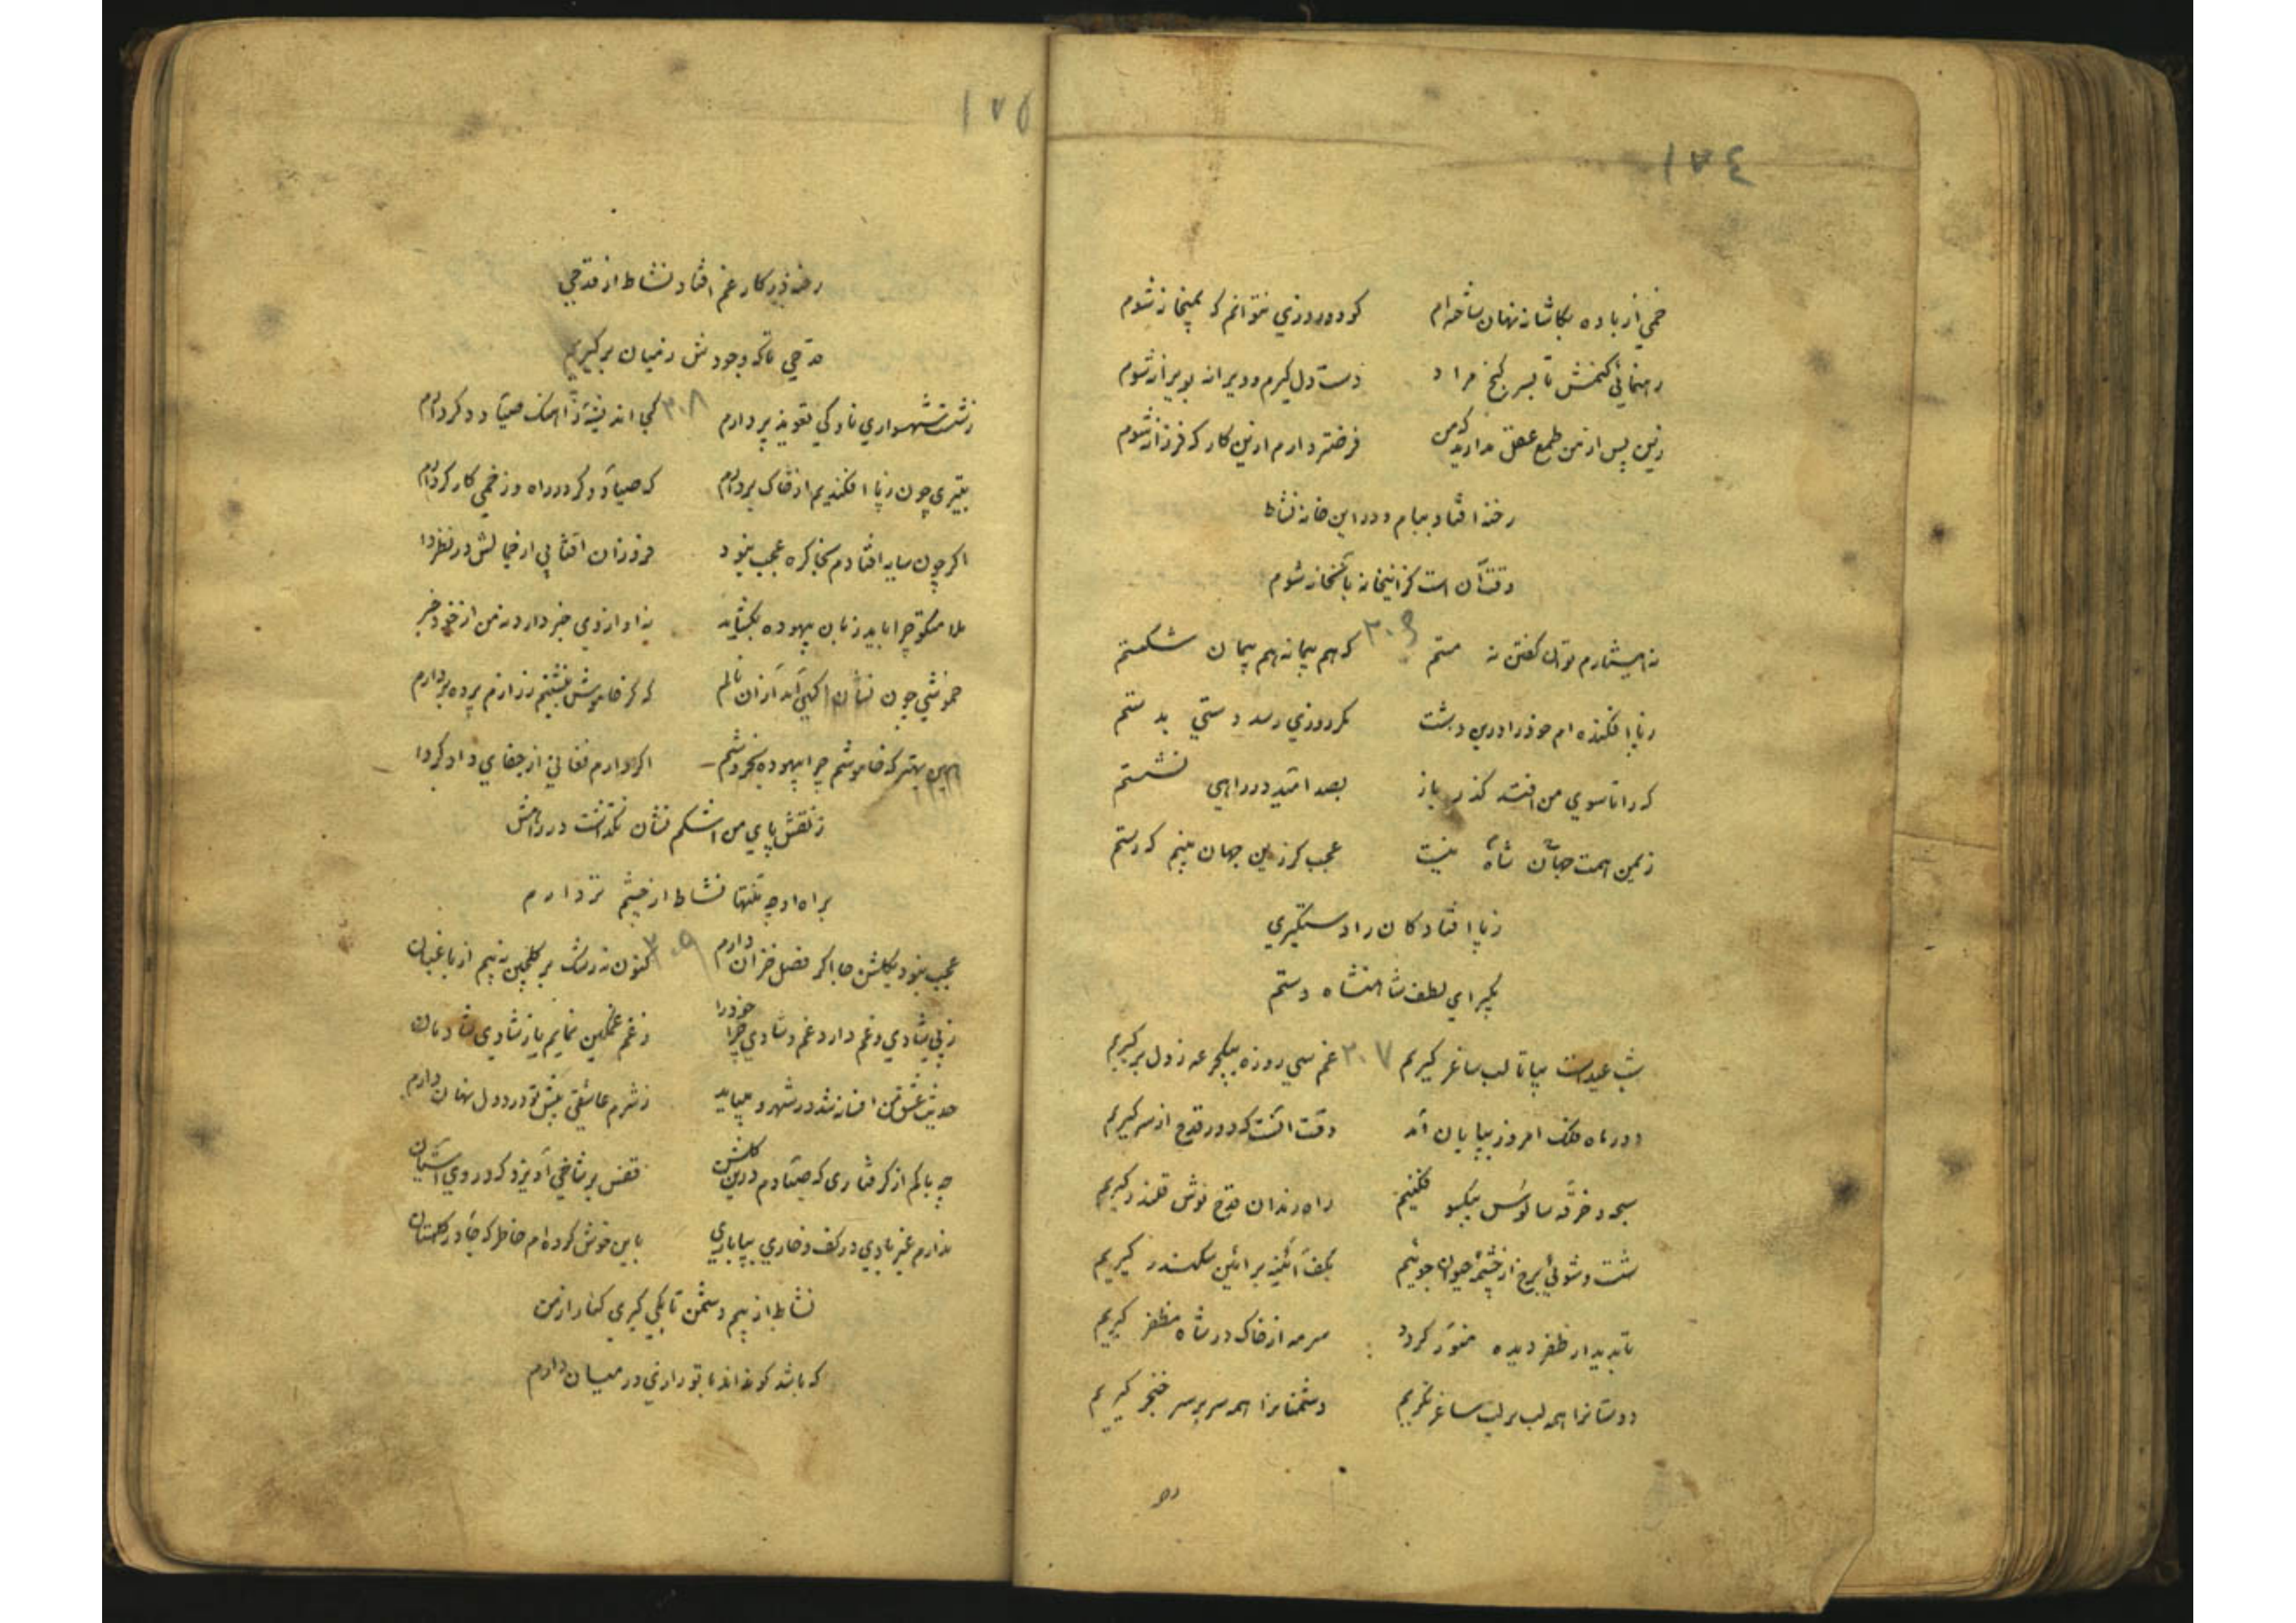 ١٧٤
خمی از باده بکاشانه نهان ساخته‌ام کو دو روزی نتوانم که بمیخانه شوم
رهنمائی کنمش تا بسر کنج مراد دست دل گیرم و دیرانه بویرانه شوم
زین پس از من طمع عقل مدارید که من فرضتر دارم ازین کار که فرزانه شوم
رخنه افتاد ببام و در این خانه نشاط
وقت آن است کز اینخانه بآنخانه شوم
نه هشیارم توان گفتن نه مستم ٣٠٦ که هم پیمانه هم پیمان شکستم
ز پا افکنده‌ام خود را درین دشت مگر روزی رسد دستی بدستم
که را تا سوی من افتد گذر باز بصد امید در راهی نشستم
زیمن همت جهان شاه نیست عجب کرزین جهان بینم که رستم
ز پا افتادگان را دستگیری
بگیر ای لطف شاهنشاه دستم
شب عیدست بیا تا لب ساغر گیریم ٣٠٧ غم سی روزه بیکجرعه ز دل برگیریم
دور ماه فلک امروز بپایان آمد وقت آنست که دور قدح از سر گیریم
سبحه و خرقه سالوس بیکسو فکنیم راه رندان قدح نوش قلندر گیریم
شست و شوئی برخ از چشمه حیوان جوئیم بکف آئینه بر آئین سکندر گیریم
تا بدیدار ظفر دیده منور گردد سرمه از خاک در شاه مظفر گیریم
دوستانرا همه لب بر لب ساغر نگریم دشمنانرا همه سر بر سر خنجر گیریم
١٧٥
رخنه در کار غم افتاد نشاط از قدحی
قدحی تا که وجودش ز میان برگیریم
ز شست شهسواری ناوکی تعویذ پر دارم ٣٠٨ کجا اندیشه از آهنگ صیاد دگر دارم
بتیری چون ز پا افکندیم از خاک بردارم که صیاد دگر در راه و زخمی کارگر دارم
اگر چون سایه افتادم بخاک ره عجب نبود فروزان آفتابی از خیالش در نظر دا
ملامتگو چرا باید زبان بیهوده بگشاید نه او از وی خبر دارد نه من از خود خبر
خموشی چون نشان آگهی آمد از آن نالم که گر خاموش بنشینم ز رازم پرده بردارم
همین بهتر که خاموشم چرا بیهوده بخروشم اگر دارم فغانی از جفای دادگر دا
ز نقش پای من اشکم نشان نگذاشت در راهش
براه او چه منتها نشاط از چشم تر دارم
عجب نبود بگلشن جا اگر فصل خزان دارم ٣٠٩ کنون نه رشک بر گلچین نه بیم از باغبان
ز پی شادی و غم دارد غم و شادی چرا خود را ز غم غمگین نمایم یا ز شادی شادمان
حدیث عشق من افسانه شد در شهر و میباید ز شرم عاشقی پیش تو در دل نهان دارم
چه باکم از گرفتاری که صیادم درین گلشن قفس بر شاخی آویزد که در وی آشیان
ندارم غیر بادی در کف و خاری بپا باری باین خوش کرده‌ام خاطر که جا در گلستان
نشاط از بیم دشمن تا بکی گیری کنار از من
که باشد کو نداند با تو رازی در میان دارم